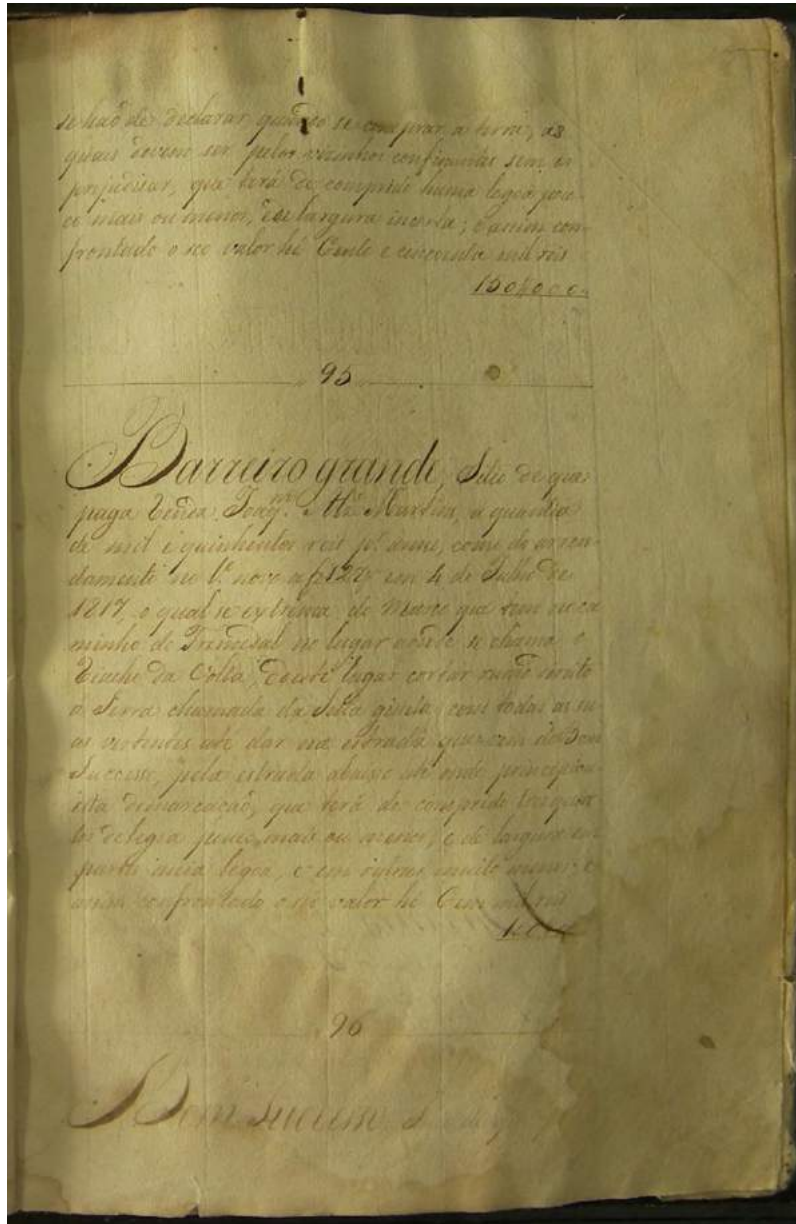 se haõ de declarar quando se comprar a terra, as
quais devem ser pelos vizinhos confinantes sem os
prejudicar, que terá de comprido huma legoa pou-
co mais ou menos, e de largura incerta; e assim con-
frontado o seo valor hé Cento e cincoenta mil reis
150$000
95
Barreiro grande, Sitio de que
paga Renda Joaqm. Martins, a quantia
de mil e quinhentos reis pr. anno, como do arren-
damento no Lo. novo a f 127 em 4 de Julho de
1817, o qual se extrema do Marco que tem no ca-
minho do no lugar aonde se chama o
Riacho da Volta, deste lugar cortar rumo direito
a Serra chamada da com todas as su-
as vertentes até dar na estrada que vem do Bom
Successo, pela estrada abaixo até onde principiou
esta demarcação, que terá de comprido tres quar-
tos de legoa pouco mais ou menos, e de largura em
partes meia legoa, e em outras muito menos; e
assim confrontado o seo valor hé Cem mil reis
96
Bom Successo